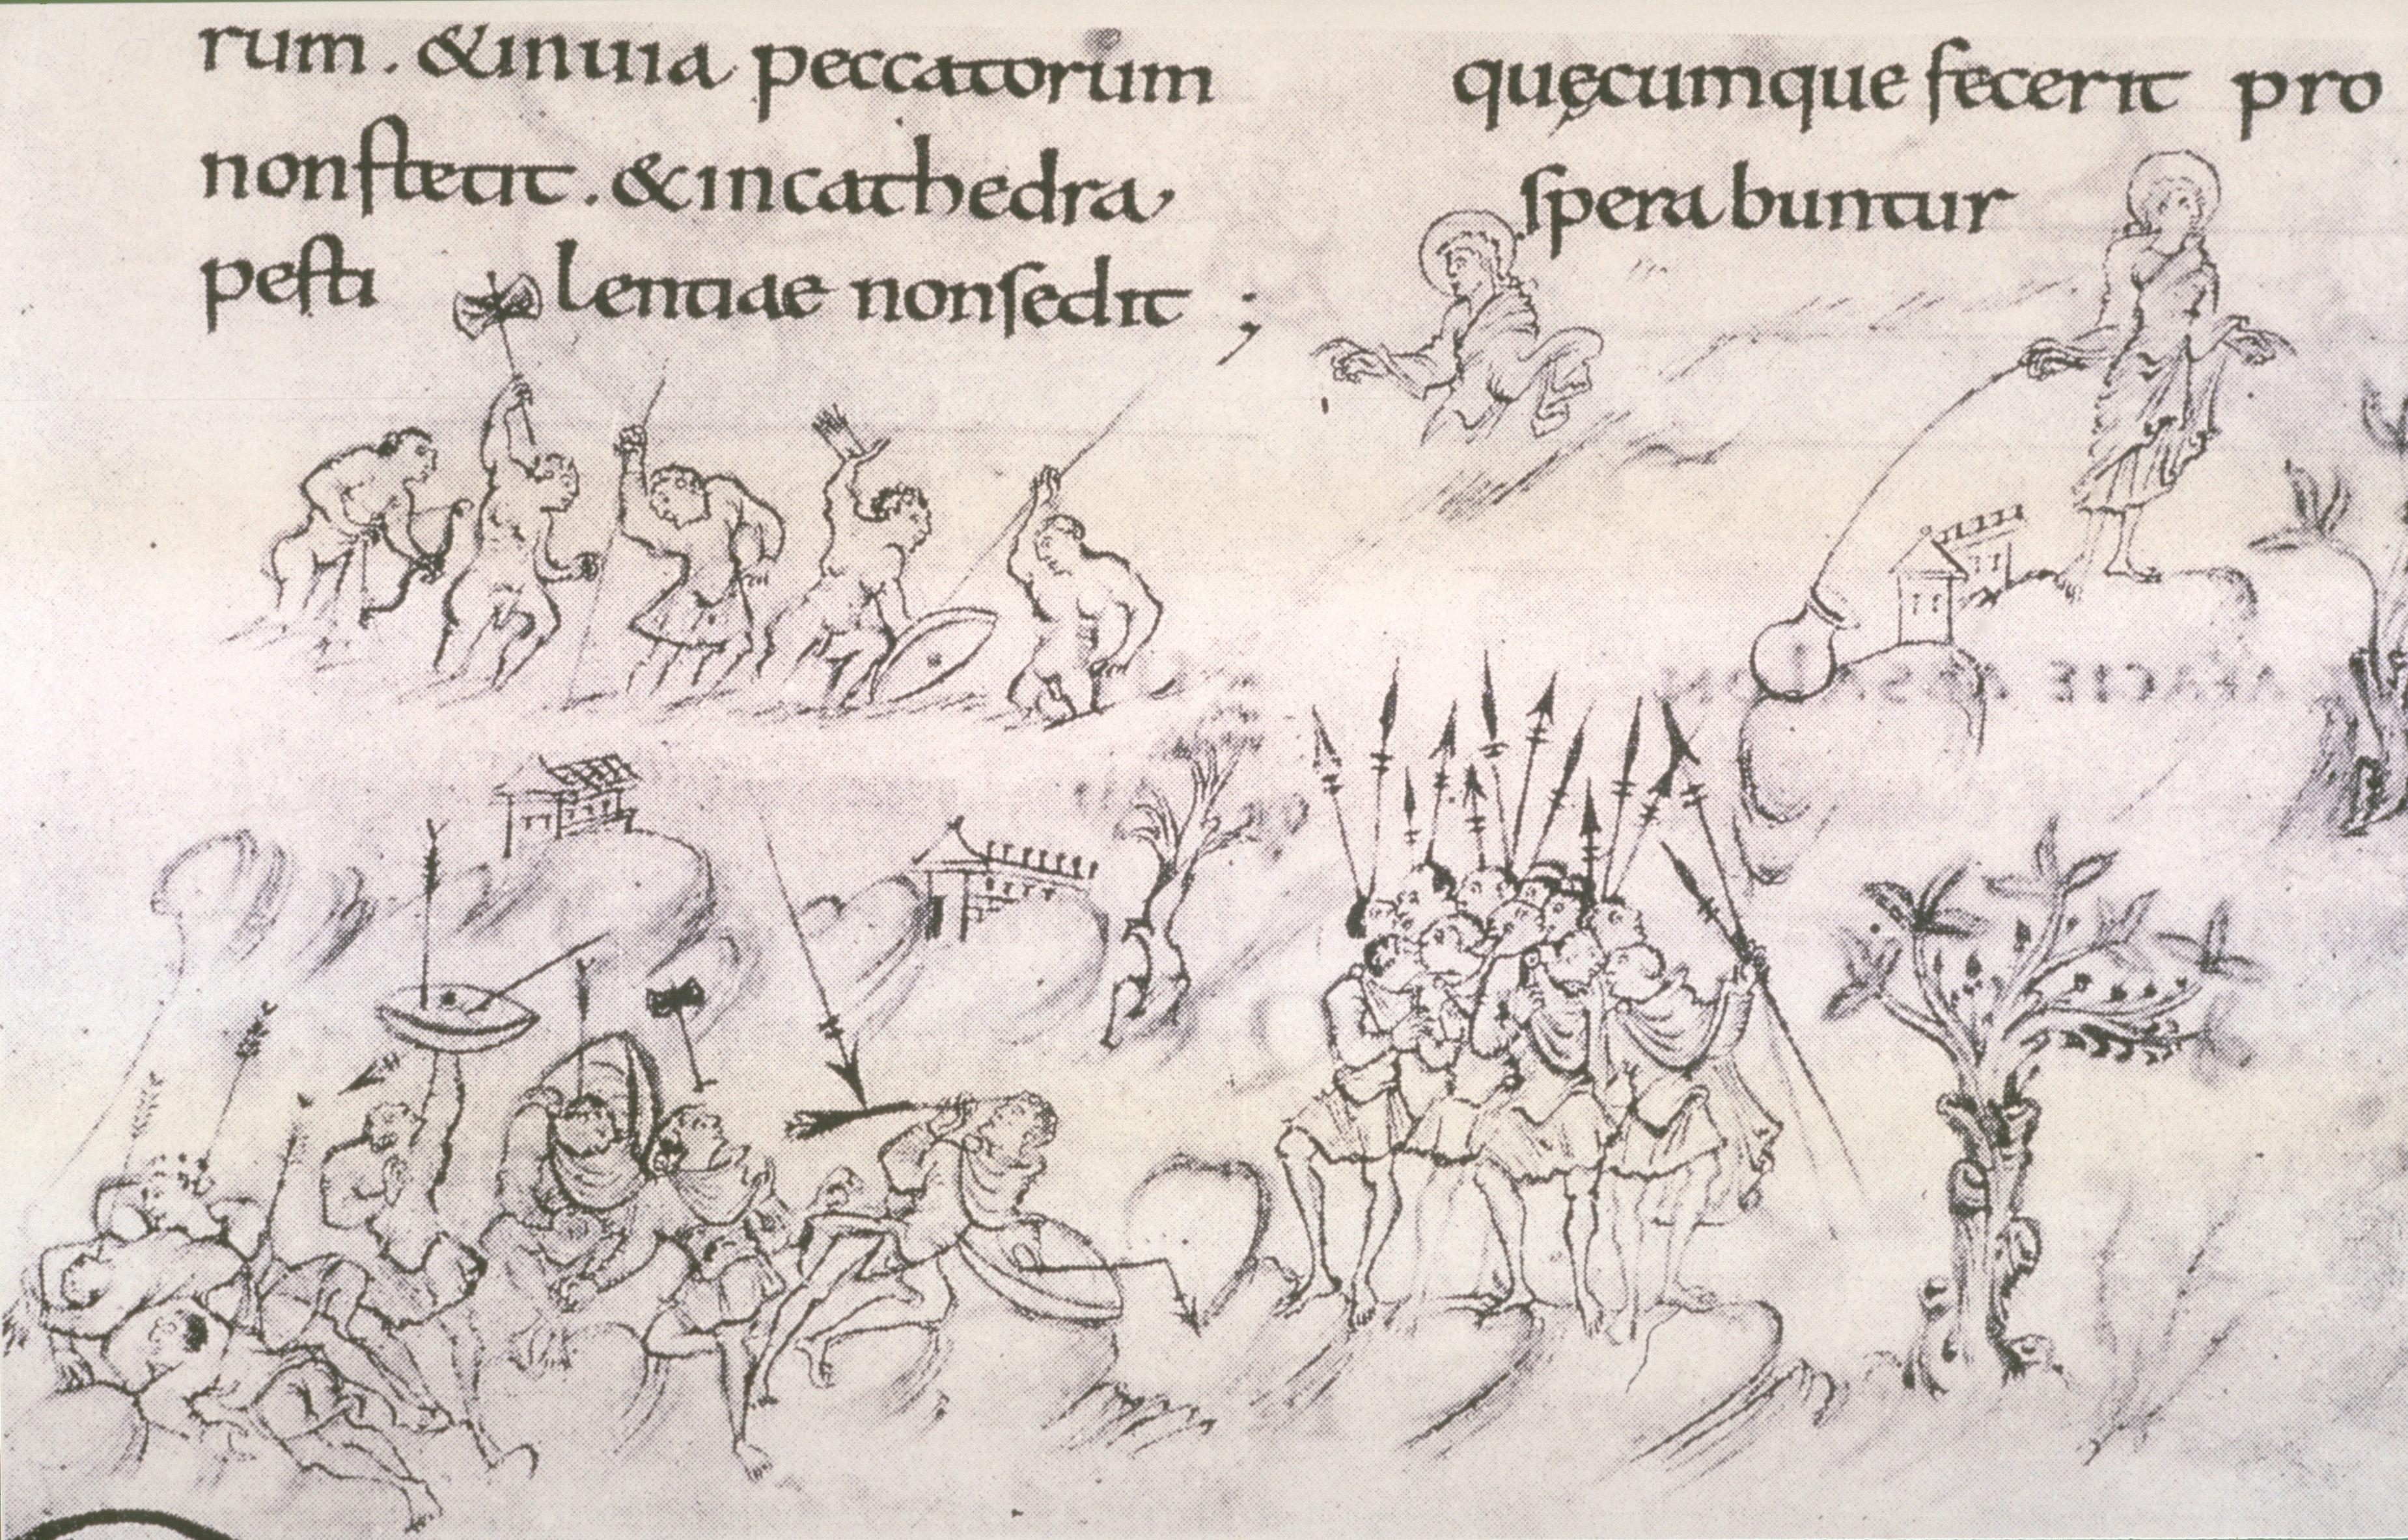 rum . &inuia peccatorum
nonstetit . &incathedra
pesti lentiae nonsedit ;
quęcumque fecerit pro
sperabuntur